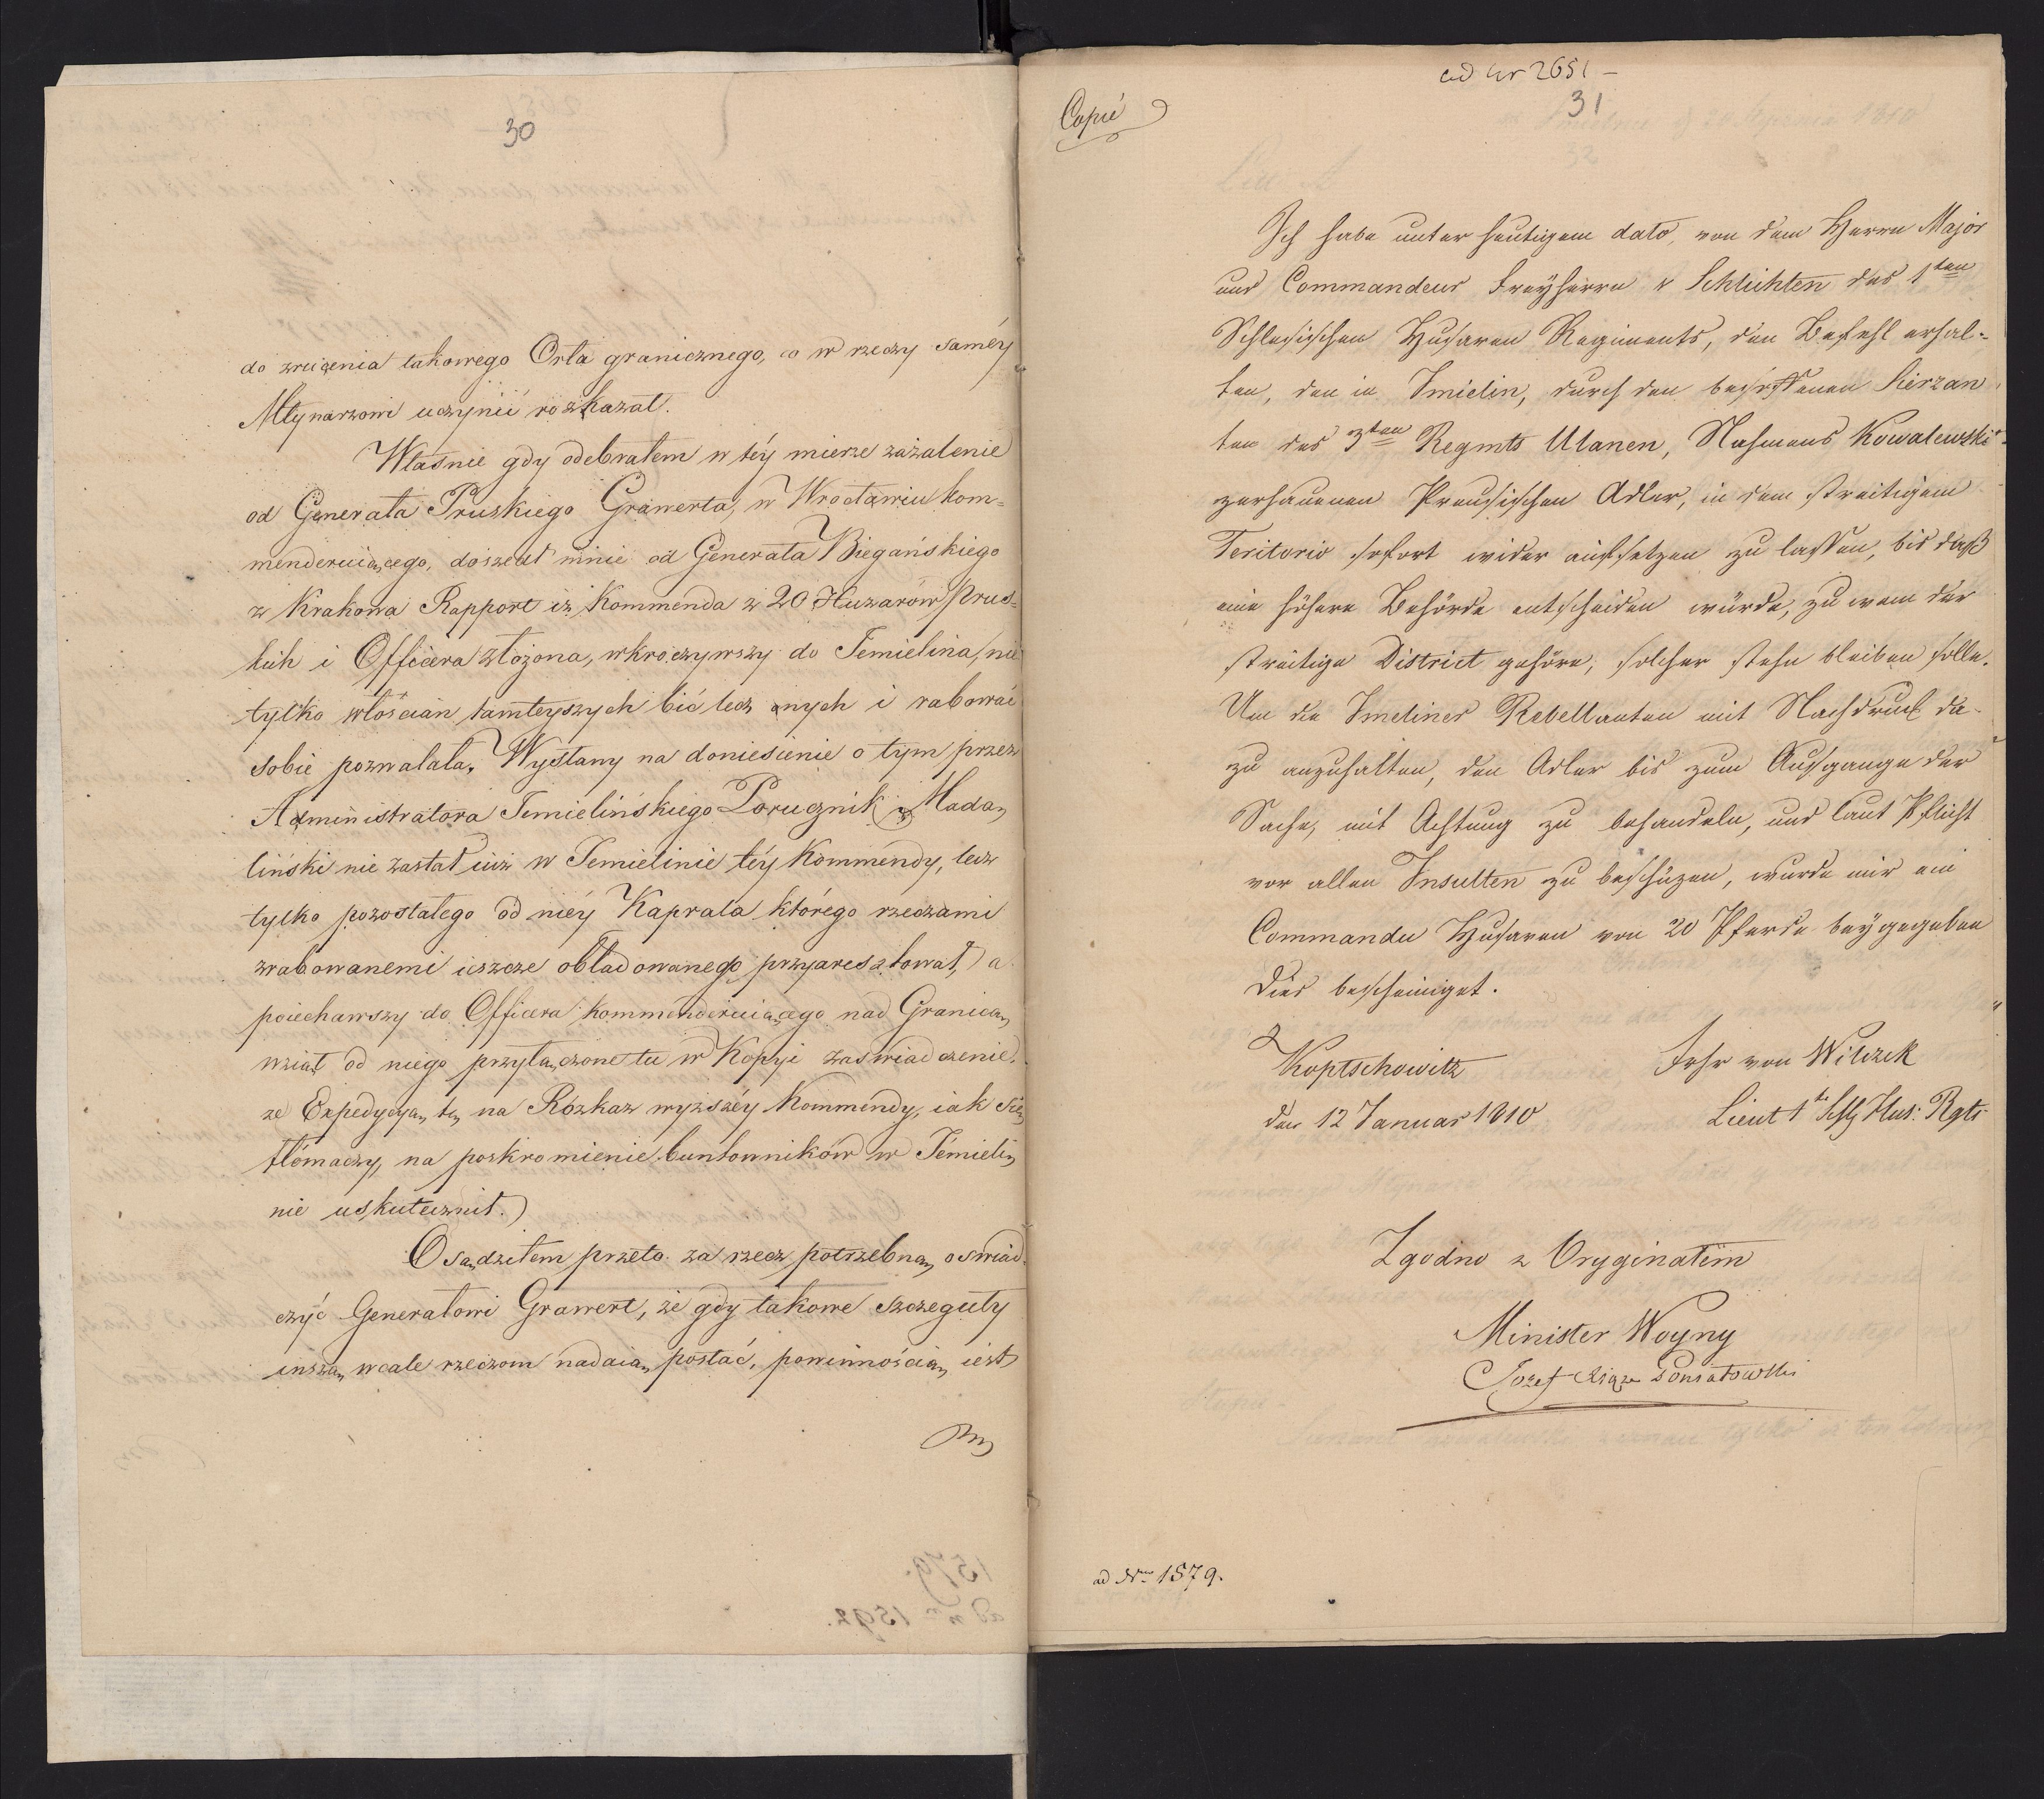 30
do zrucenia takowego Orła granicznego, co w rzeczy saméy
Młynarzowi uczynić rozkazał.
Właśnie gdy odebrałem w téy mierze zażalenie
od Generała Pruskiego Grawerta, w Wrocławiu kom=
menderuiącego, doszedł mnie od Generała Biegańskiego
z Krakowa Rapport iż Kommenda z 20 Huzarów Prus=
kich i Officera złożona, wkroczywszy do Jemielina, nie
tylko włościan tamteyszych bić lecz onych i rabować
sobie pozwalała. Wysłany na doniesienie o tym przez
Administratora Jemielińskiego Porucznik Mada,
liński nie zastał iuż w Jemielinie téy Kommendy, lecz
tylko pozostałego od niéy Kaprala którego rzeczami
zrabowanemi ieszcze obładowanego przyaresztował, a
poiechawszy do Officera kommenderuiącego nad Granicą
wziął od niego przyłączone tu w Kopyi zaświadczenie,
że Expedycyą tę na Rozkaz wyższéy Kommendy, iak się
tłómaczy, na poskromienie buntowników w Jemieli,
nie uskutecznił.
Osądziłem przeto za rzecz potrzebną oświad,
czyć Generałowi Grawert, że gdy takowe szczeguły
inszą wcale rzeczom nadaią postać, powinnością iest
ad Nr 2651 –
31
Copié
Ich habe unter heutigem dato, von dem Herrn Major
und Commandeur Freyherrn v Schlichten des 1ten
Schlesischen Husaren Regiments, den Befehl erhal=
ten, den in Imielin, durch den besoffenen Sierzan
ten des 3ten Regmts Ulanen, Nahmens Kowalewski
zerhauenen Preusischen Adler, in dem streitigem
Teritorio sofort wider aufsetzen zu lassen, bis daß
eine höhere Behörde entscheiden würde, zu wem der
streitige District gehöre, solcher stehn bleiben solle.
Um die Imeliner Rebellanten mit Nachdruck da-
zu anzuhalten, den Adler bis zum Ausgange der
Sache, mit Achtung zu behandeln, und laut Pflicht
vor allen Insulten zu beschüzen, wurde mir ein
Commando Husaren von 20 Pferde beygegeben
Dies bescheiniget.
Koptschowitz
den 12 Januar 1810
Frhr von Wilczek
Lieut 1te Schl Hus: Rgts
Zgodno z Oryginałem
Minister Woyny
Jozef Xiąże Poniatowski
ad Nrum 1579.